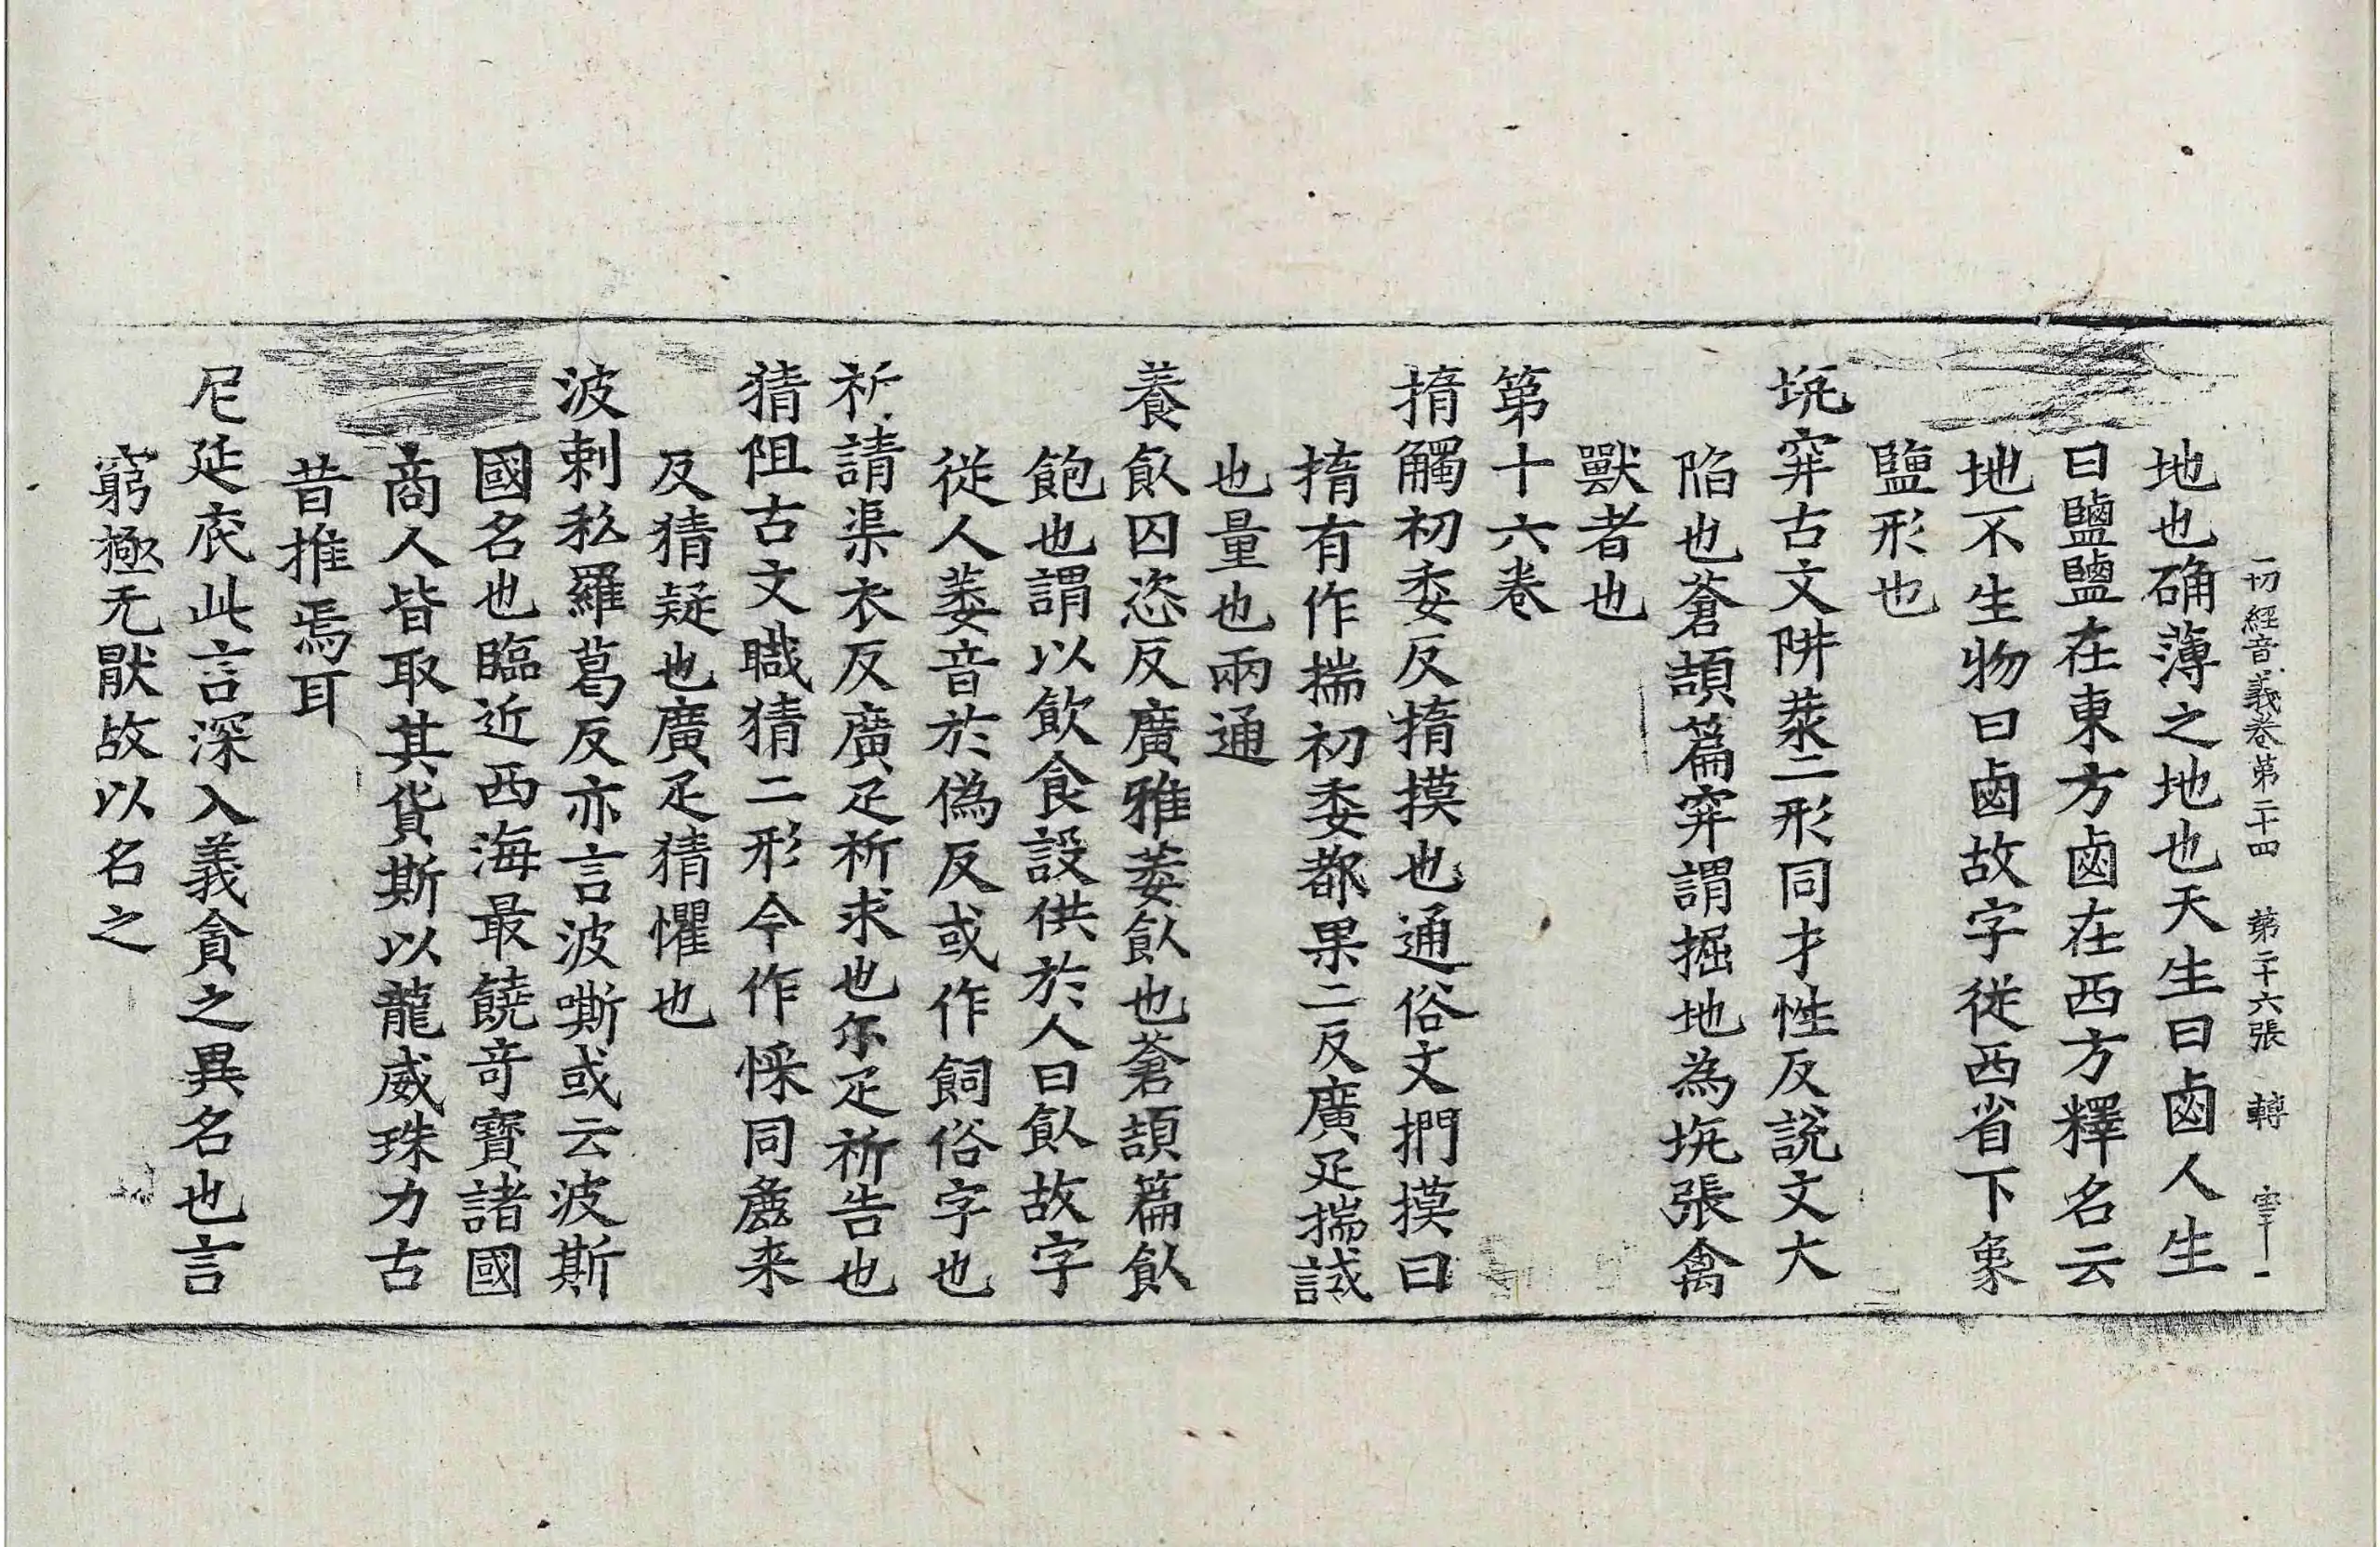 一切經音義卷第二十四 第二十六張 轉
地也确薄之地也天生曰鹵人生
曰鹽鹽在東方鹵在西方釋名云
地不生物曰鹵故字從西省下象
鹽形也
坑穽古文阱𦮼二形同才性反說文大
陷也蒼頡篇穽謂掘地為坑張禽
獸者也
第十六卷
揣觸初委反揣摸也通俗文捫摸曰
揣有作揣初委都果二反廣疋揣試
也量也兩通
養飤囚恣反廣雅萎飤也蒼頡篇飤
飽也謂以飲食設供於人曰飤故字
從人萎音於偽反或作飼俗字也
祈請渠衣反廣疋祈求也尒疋祈告也
猜阻古文䐶猜二形今作㥒同麁来
反猜疑也廣疋猜懼也
波剌私羅葛反亦言波嘶或云波斯
國名也臨近西海最饒奇寶諸國
商人皆取其貨斯以龍威珠力古
昔推焉耳
尼延底此言深入義貪之異名也言
窮極无猒故以名之